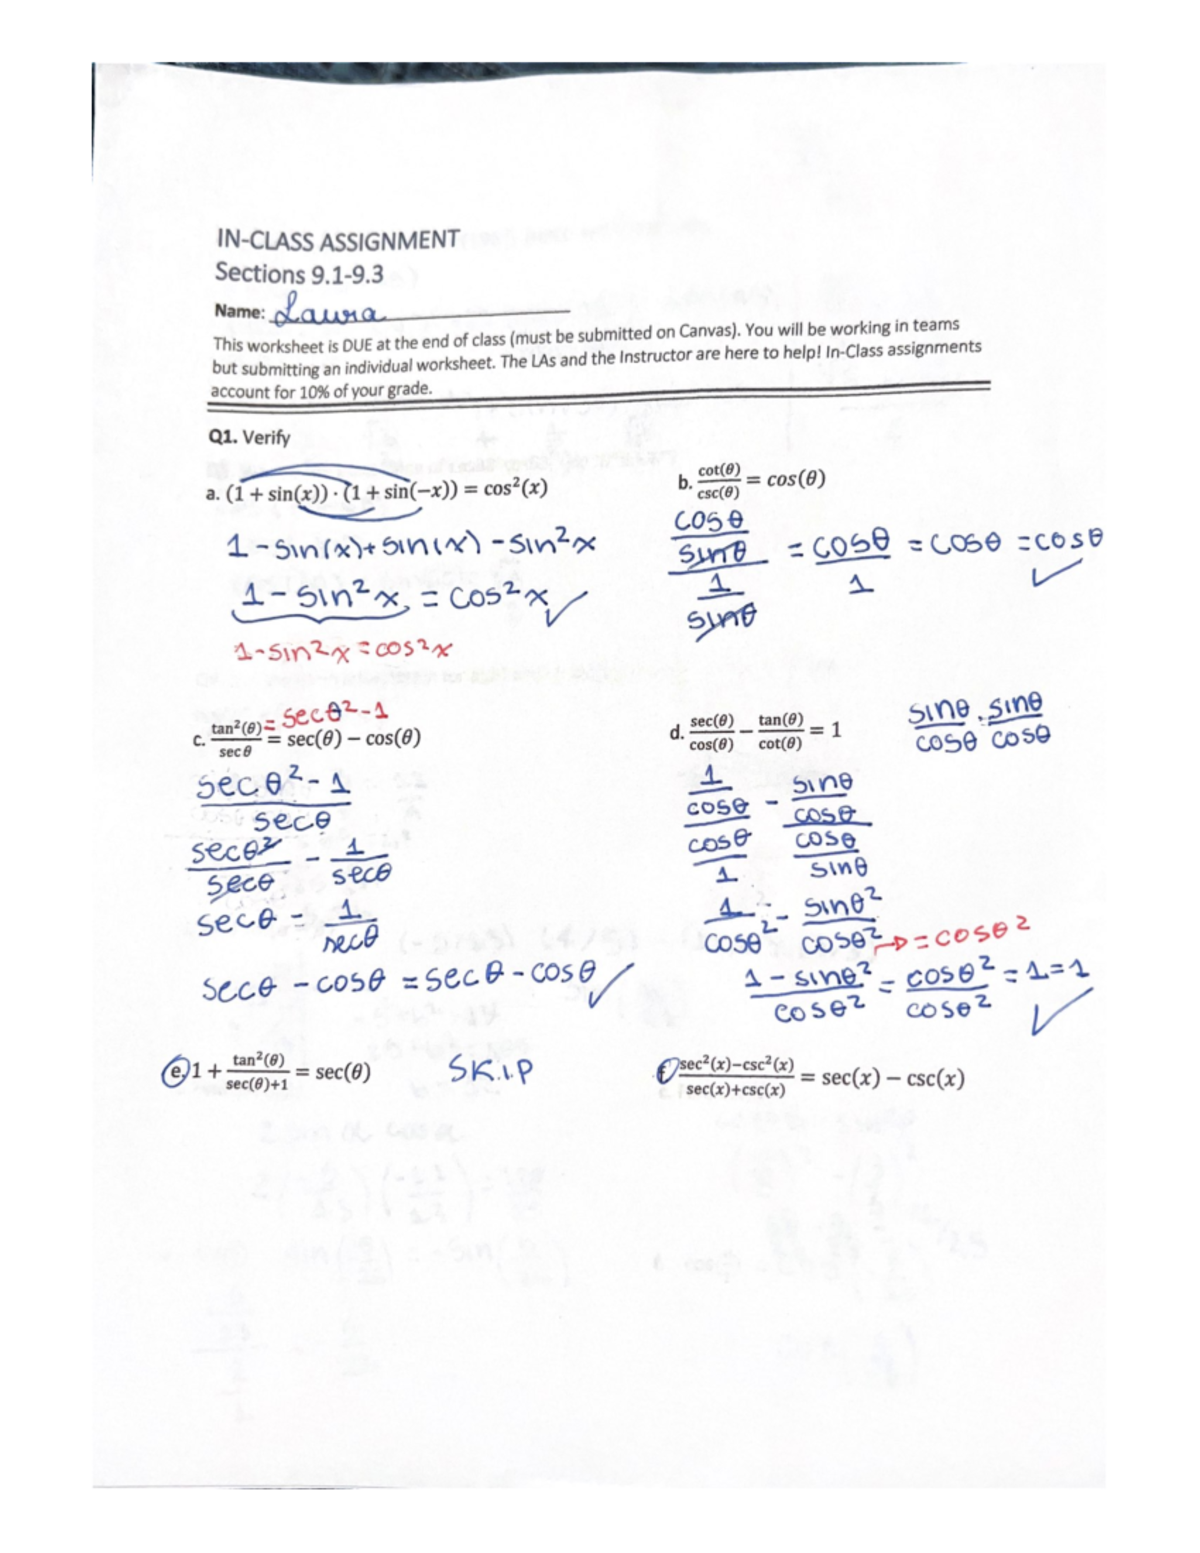 IN-CLASS ASSIGNMENT
Sections 9.1-9.3
Name: Laura
This worksheet is DUE at the end of class (must be submitted on Canvas). You will be working in teams
but submitting an individual worksheet. The LAs and the Instructor are here to help! In-Class assignments
account for 10% of your grade.
Q1. Verify
a. (1 + sin(x)) · (1 + sin(−x)) = cos²(x)
1 - sin(x) + sin(x) - sin²x
1 - sin²x = cos²x ✓
1-sin²x = cos²x
b. cot(θ)/csc(θ) = cos(θ)
cosθ/sinθ / 1/sinθ = cosθ/1 = cosθ = cosθ ✓
c. tan²(θ)/sec θ = sec(θ) − cos(θ)
= secθ²-1
secθ²-1/secθ
secθ²/secθ - 1/secθ
secθ - 1/secθ
secθ - cosθ = secθ - cosθ ✓
d. sec(θ)/cos(θ) − tan(θ)/cot(θ) = 1
sinθ/cosθ · sinθ/cosθ
1/cosθ / cosθ/1 - sinθ/cosθ / cosθ/sinθ
1/cosθ² - sinθ²/cosθ² → = cosθ²
1 - sinθ²/cosθ² = cosθ²/cosθ² = 1 = 1 ✓
e. 1 + tan²(θ)/sec(θ)+1 = sec(θ)
SK.I.P
f. sec²(x)−csc²(x)/sec(x)+csc(x) = sec(x) − csc(x)